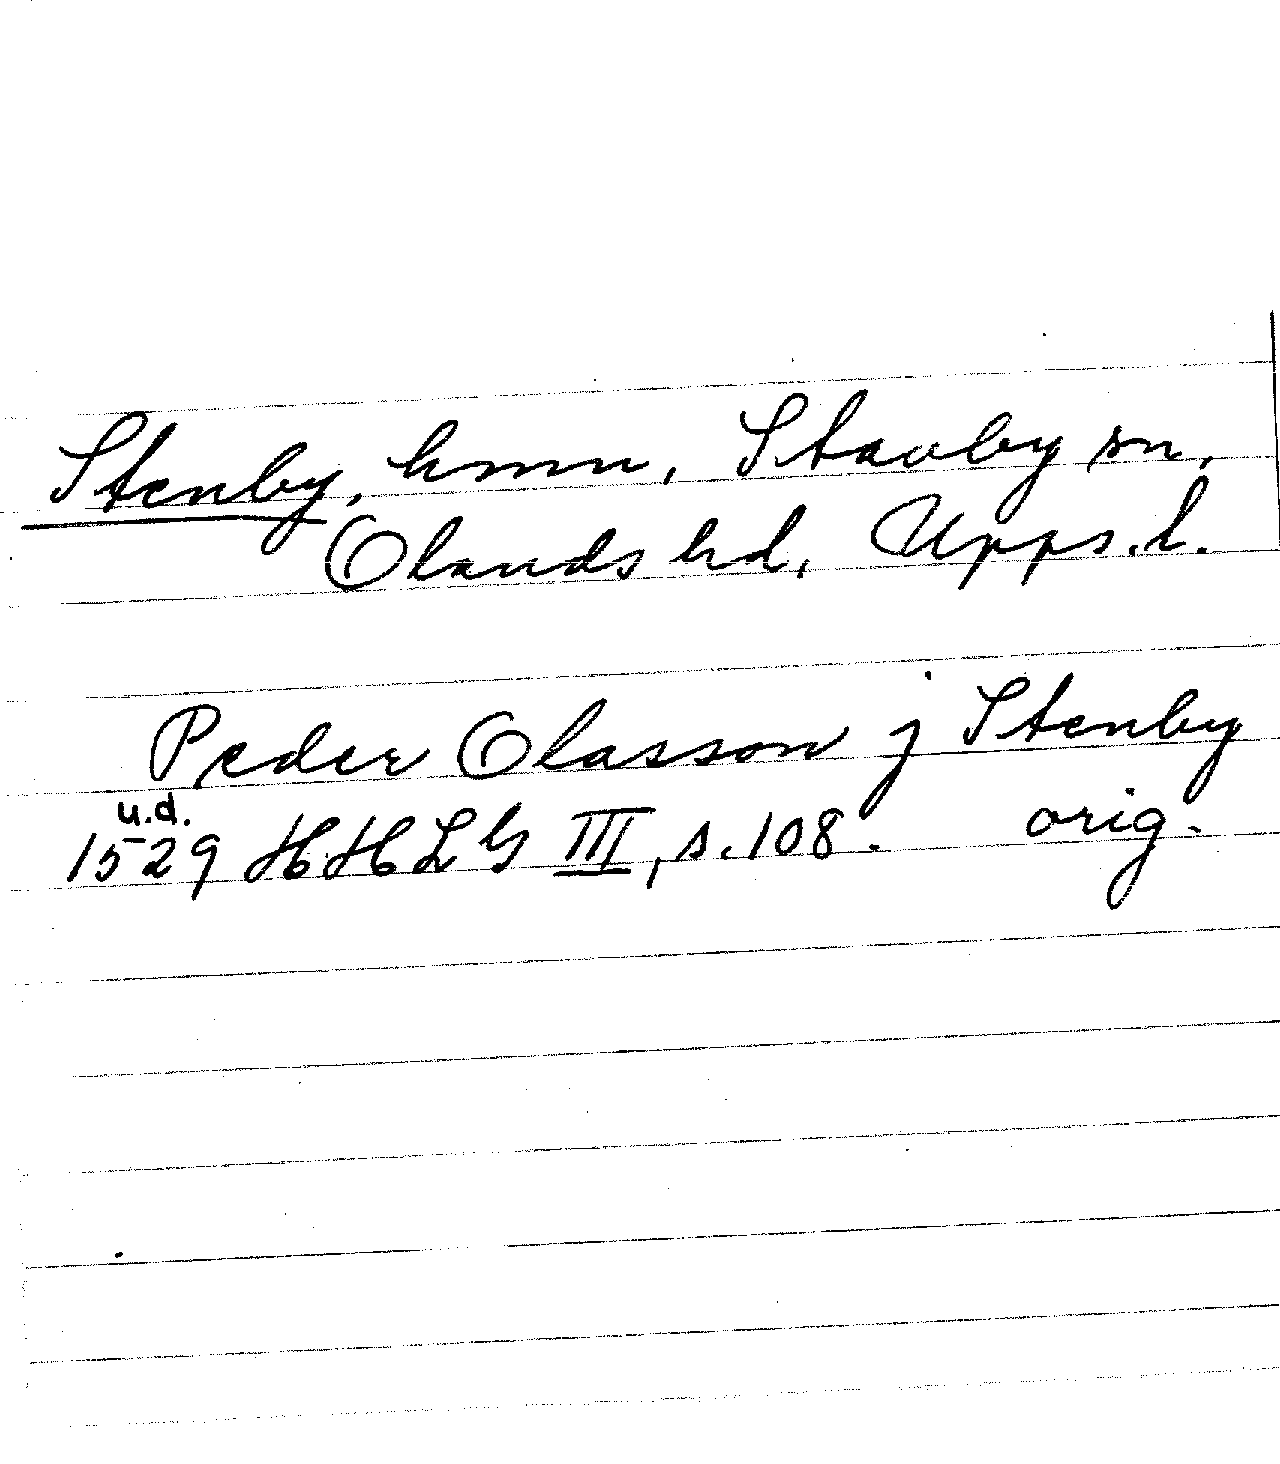 Stenby, hmn, Stavby sn,
Olands hd, Upps. l.
Peder Olasson j Stenby
u.d.
1529 HHLG III, s. 108. orig.